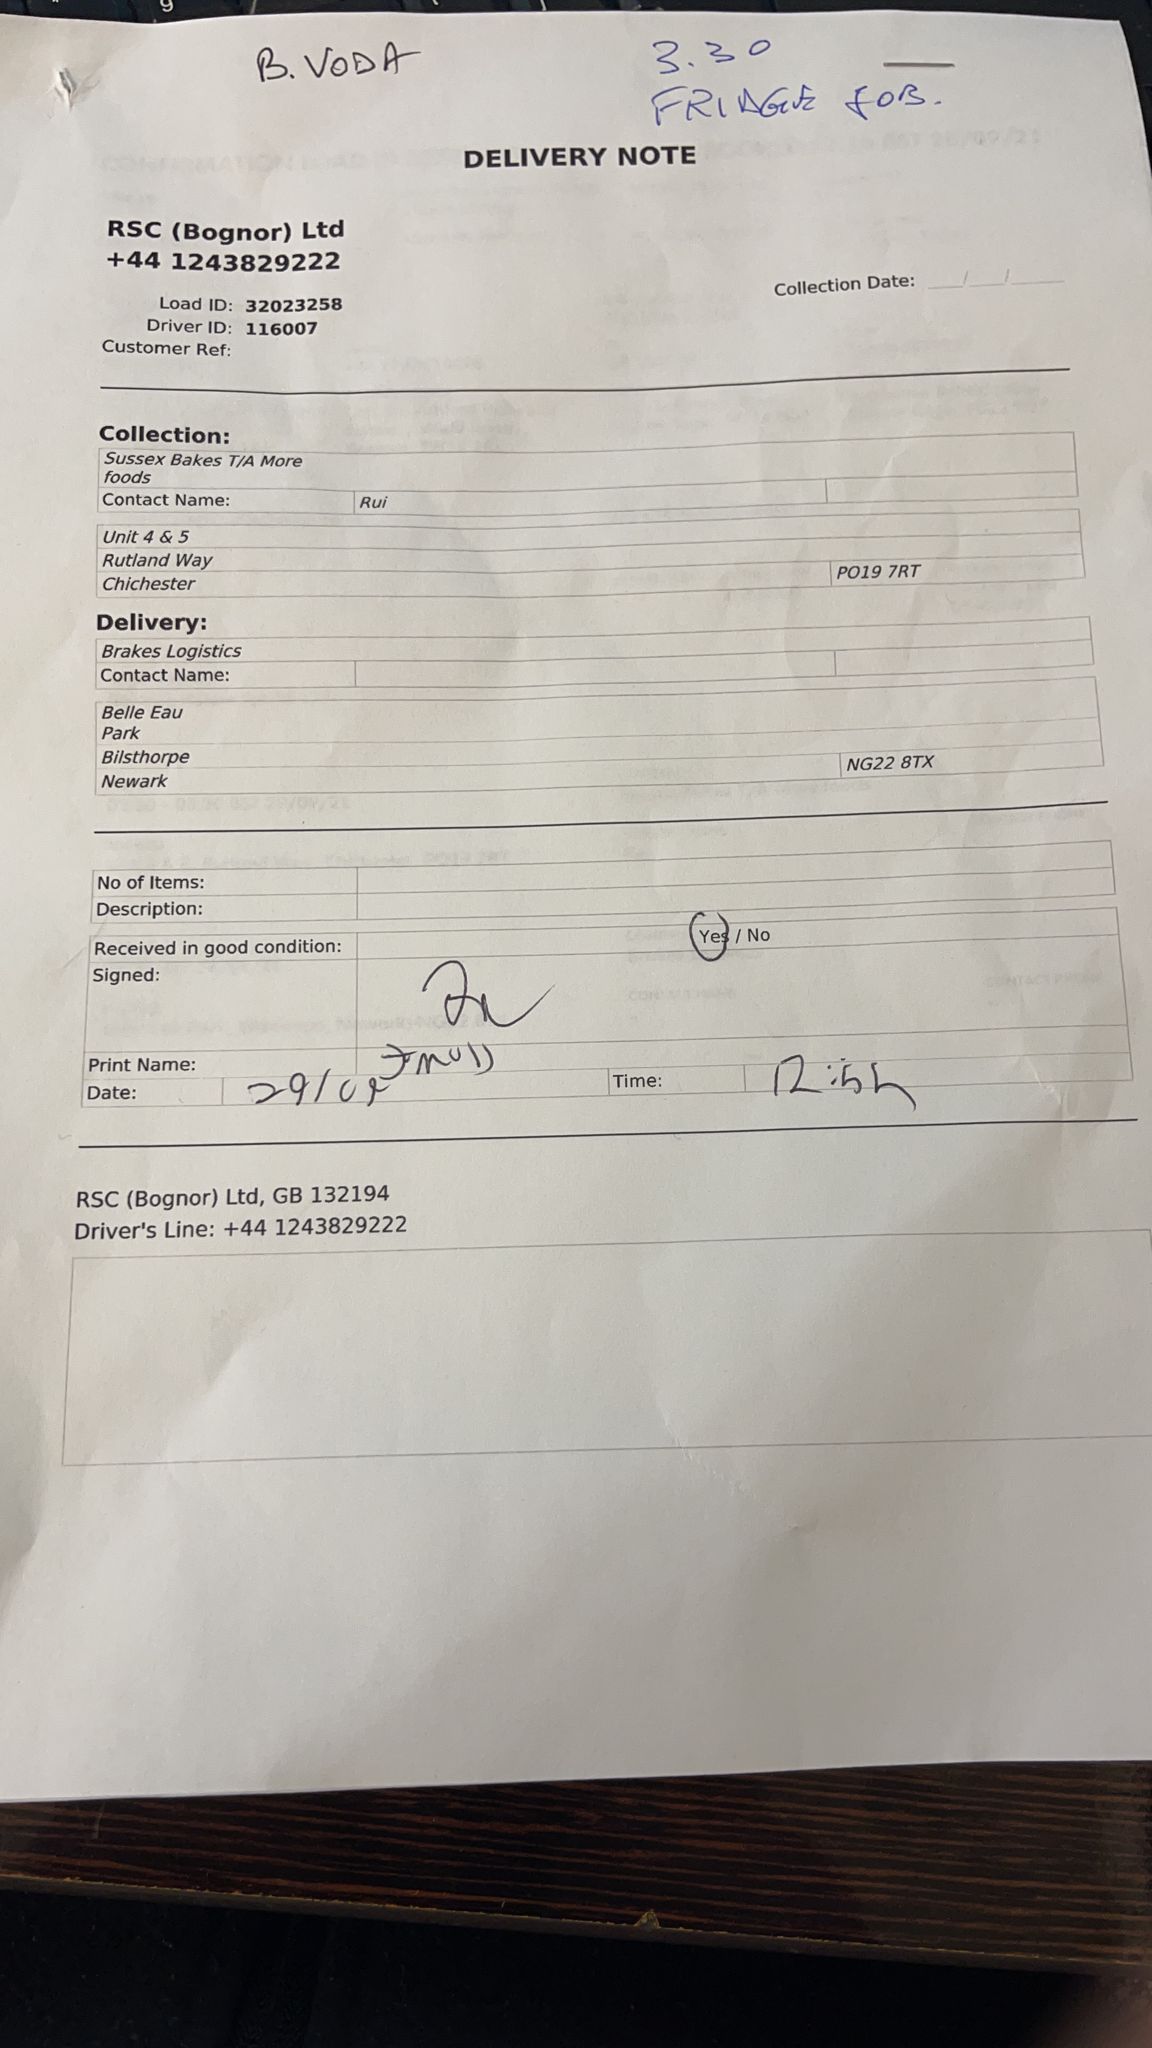 B. VODA
3.30
FRIDGE JOB.
DELIVERY NOTE
RSC (Bognor) Ltd
+44 1243829222
Load ID: 32023258
Driver ID: 116007
Customer Ref:
Collection Date: __/__/____
Collection:
Sussex Bakes T/A More
foods
Contact Name: Rui
Unit 4 & 5
Rutland Way
Chichester PO19 7RT
Delivery:
Brakes Logistics
Contact Name:
Belle Eau
Park
Bilsthorpe
Newark NG22 8TX
No of Items:
Description:
Received in good condition: Yes / No
Signed:
Print Name:
Date: 29/09 Time:
RSC (Bognor) Ltd, GB 132194
Driver's Line: +44 1243829222